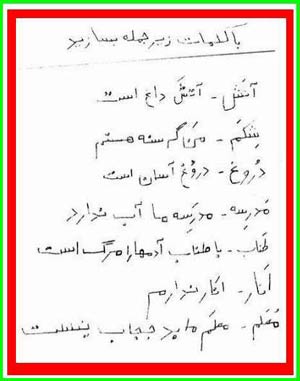 با کلمات زیر جمله بسازید
آتَش - آتش داغ است
شِکَم - من گرسنه هستم
دُروغ - دروغ آسان است
مَدرسه - مدرسه ما آب ندارد
طَناب - با طناب آدمها را مرگ است
اَنار - انار ندارم
مُعَلم - معلم ما بد حجاب نیست